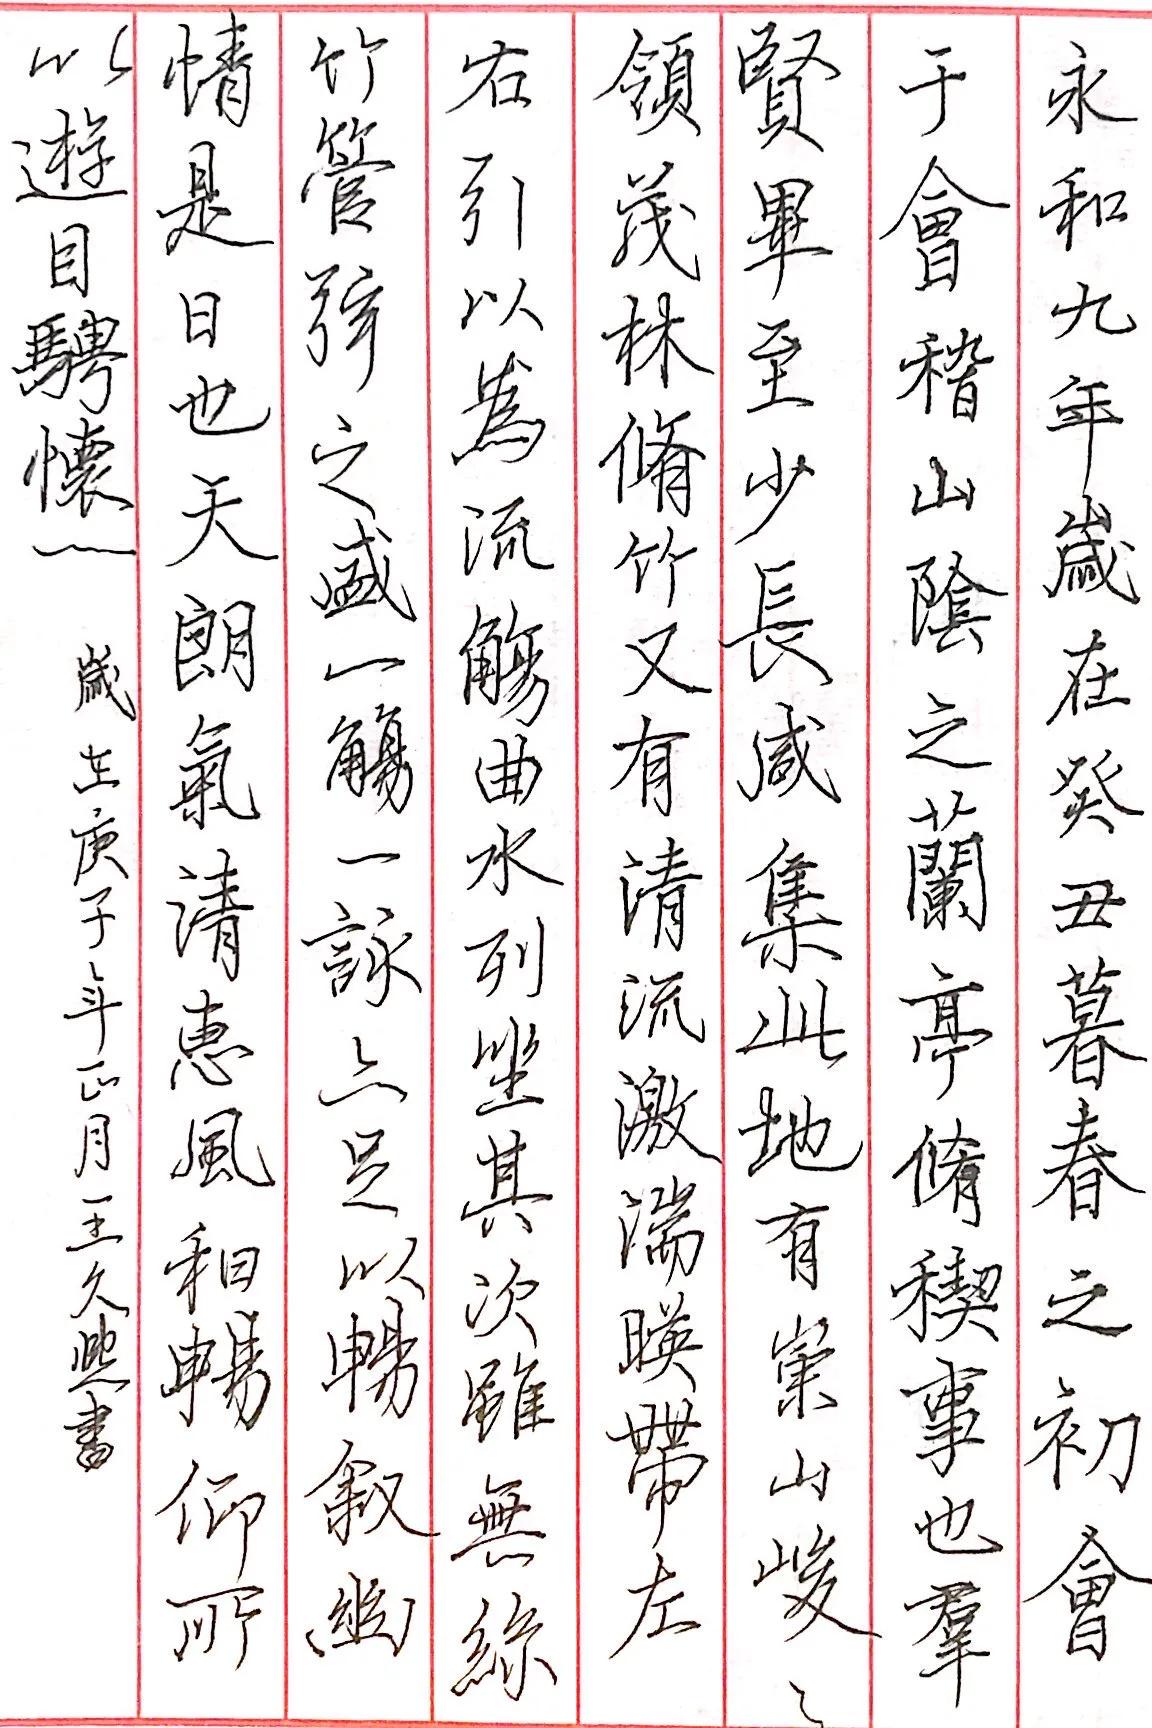 永和九年歲在癸丑暮春之初會
于會稽山陰之蘭亭脩稧事也羣
賢畢至少長咸集此地有崇山峻〻
領茂林脩竹又有清流激湍暎帶左
右引以為流觴曲水列坐其次雖無絲
竹管弦之盛一觴一詠亦足以暢敘幽
情是日也天朗氣清惠風和暢仰所
以遊目騁懷
歲在庚子年正月王久熙書